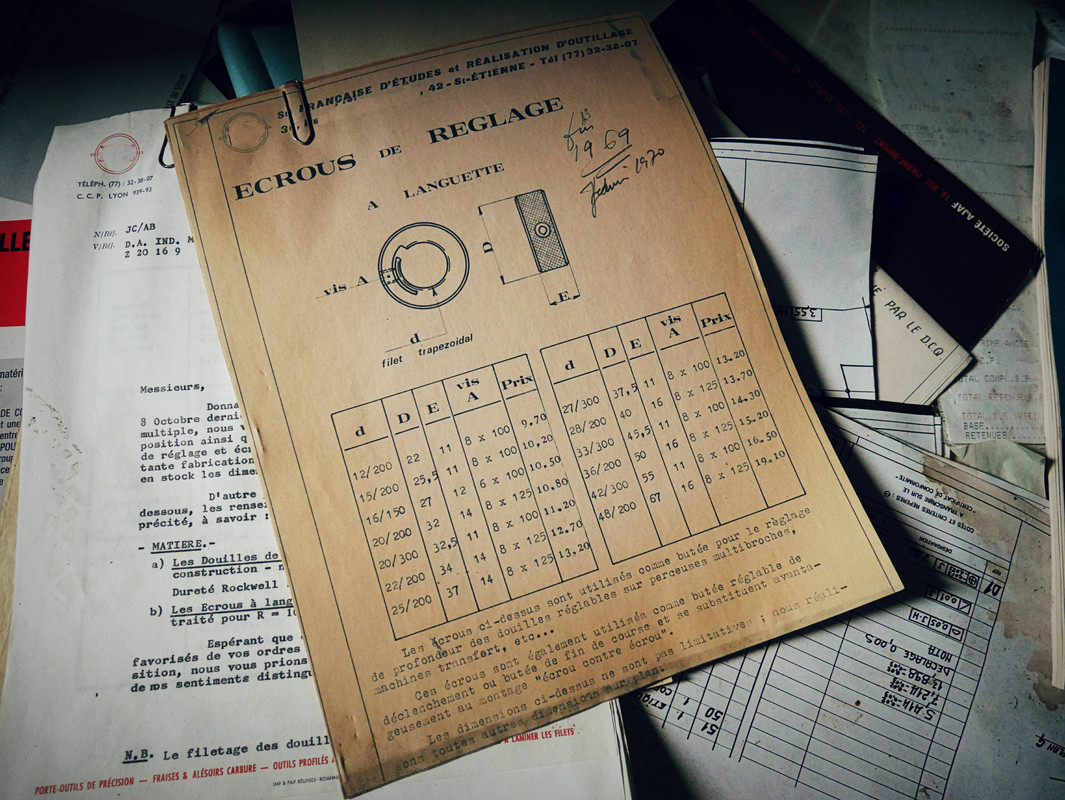 FRANÇAISE D'ÉTUDES et RÉALISATION D'OUTILLAGE
, 42 - St-ÉTIENNE - Tél (77) 32-38-07
ECROUS DE REGLAGE
A LANGUETTE
1969
1970
vis A
D
E
d
filet trapezoidal
d D E vis A Prix
12/200 22 11 8 x 100 9.70
15/200 25,5 11 8 x 100 10.20
16/150 27 12 6 x 100 10.50
20/200 32 14 8 x 125 10.80
20/300 32,5 11 8 x 100 11.20
22/200 34 14 8 x 125 12.70
25/200 37 14 8 x 125 13,20
d D E vis A Prix
27/300 37,5 11 8 x 100 13.20
28/200 40 16 8 x 125 13.70
33/300 45,5 11 8 x 100 14.30
36/200 50 16 8 x 125 15.20
42/300 55 11 8 x 100 16.50
48/200 67 16 8 x 125 19.10
Les écrous ci-dessus sont utilisés comme butée pour le règlage
de profondeur des douilles réglables sur perceuses multibroches,
machines transfert, etc...
Ces écrous sont également utilisés comme butée réglable de
déclenchement ou butée de fin de course et se substituent avanta-
geusement au montage "écrou contre écrou".
Les dimensions ci-dessus ne sont pas limitatives ; nous réali-
sons toutes autres dimensions sur plan.
TÉLÉPH. (77) : 32-38-07
C. C. P. LYON 939-93
N/Réf. JC/AB
V/Réf. D.A. IND. M
Z 20 16 9
Messieurs,
Donna
8 Octobre derni
multiple, nous v
position ainsi q
de réglage et écr
tante fabrication
en stock les dime
D'autre
dessous, les rensei
précité, à savoir :
- MATIERE.-
a) Les Douilles de
construction - n
Dureté Rockwell
b) Les Ecrous à lang
traité pour R = 10
Espérant que
favorisés de vos ordres
sition, nous vous prions
de nos sentiments distingu
N.B. Le filetage des douill
PORTE-OUTILS DE PRÉCISION — FRAISES & ALÉSOIRS CARBURE — OUTILS PROFILÉS
À LAMINER LES FILETS
IMP & PAP. RÉUNIES - ROANN
LLE
SOCIÉTÉ AJAF 14 RUE PIERRE DUPONT
3,55
PAR LE DCQ
TOTAL COMPL.
BASE
RETENUES
COTES ET CRITERES REPERES :
A TRANSCRIRE SUR LE
"CERTIFICAT DE CONFORMITE"
DESIGNATION
NOTA
DECALAGE 0,005